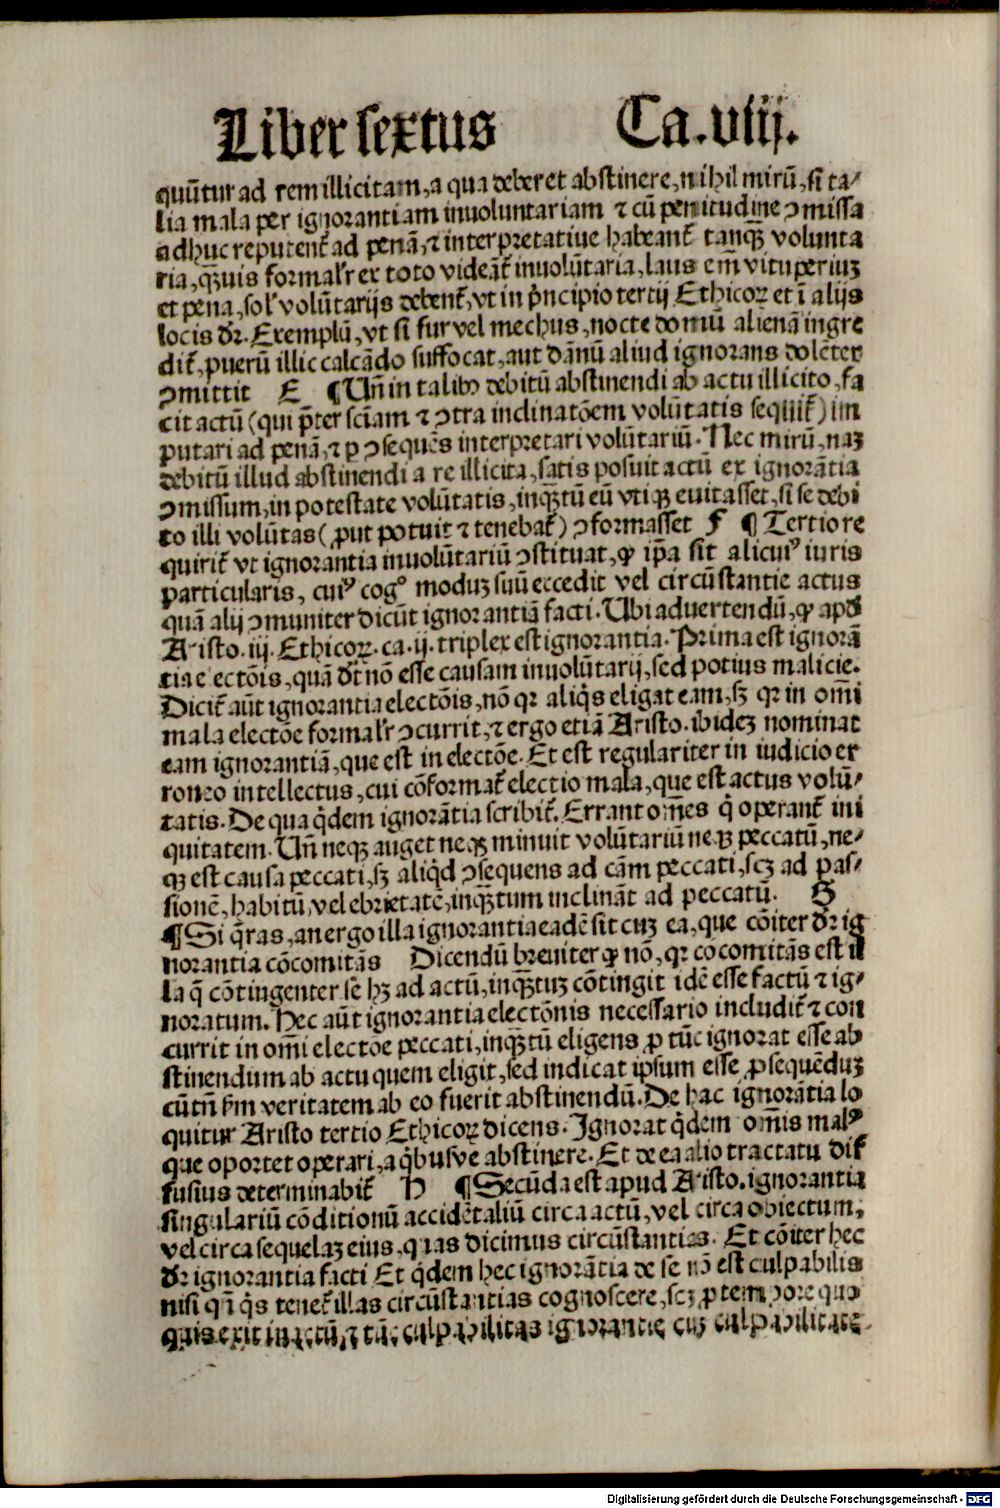 Liber sextus Ca.viij.
quūtur ad rem illicitam, a qua deberet abstinere, nihil mirū, si ta⸗
lia mala per ignorantiam inuoluntariam ⁊ cū penitudine ꝯmissa
adhuc reputent᷑ ad penā, ⁊ interpretatiue habeant᷑ tanqꝫ volunta
ria, qꝫuis formal'r ex toto videāt᷑ inuolūtaria, laus em̄ vituperiuꝫ
et pena, sol' volūtarijs debent᷑, vt in pͥncipio tertij Ethicoꝝ et ī alijs
locis dr̄. Exemplū, vt si fur vel mechus, nocte domū alienā ingre
dit᷑, puerū illic calcādo suffocat, aut dānū aliud ignorans dolēter
ꝯmittit E ¶ Un̄ in talibꝰ debitū abstinendi ab actu illicito, fa
cit actū (qui p̄ter sciam ⁊ ꝯtra inclinatōem volūtatis sequit᷑) im
putari ad penā, ⁊ p ꝯsequēs interpretari volūtariū. Nec mirū, naꝫ
debitū illud abstinendi a re illicita, satis posuit actū ex ignorātia
ꝯmissum, in potestate volūtatis, inqꝫtū eū vtiqꝫ euitasset, si se debi
to illi volūtas (ꝓut potuit ⁊ tenebat᷑) ꝯformasset F ¶ Tertio re
quirit᷑ vt ignorantia inuolūtariū ꝯstituat, ꝙ ip̄a sit alicuiꝰ iuris
particularis, cuiꝰ cogͦ moduꝫ suū eccedit vel circūstantie actus
quā alij ꝯmuniter dicūt ignorantiā facti. Ubi aduertendū, ꝙ apd'
Aristo. iij. Ethicoꝝ. ca. ij. triplex est ignorantia. Prima est ignorā
tia electōis, quā dr̄ nō esse causam inuolūtarij, sed potius malicie.
Dicit᷑ aūt ignorantia electōis, nō qꝛ aliqͥs eligat eam, sꝫ qꝛ in om̄i
mala electōe formal'r ꝯcurrit, ⁊ ergo etiā Aristo. ibideꝫ nominat
eam ignorantiā, que est in electōe. Et est regulariter in iudicio er
roneo intellectus, cui cōformat᷑ electio mala, que est actus volū⸗
tatis. De qua qͥdem ignorātia scribit᷑. Errant om̄es qͥ operant᷑ ini
quitatem. Un̄ neqꝫ auget neqꝫ minuit volūtariū neqꝫ peccatū, ne⸗
qꝫ est causa peccati, sꝫ aliqͥd ꝯsequens ad cām peccati, scꝫ ad pas⸗
sionē, habitū, vel ebrietatē, inqꝫtum inclināt ad peccatū. G
¶ Si qͥras, an ergo illa ignorantia eadē sit cuꝫ ea, que cōiter dr̄ ig
norantia cōcomitās Dicendū breuiter ꝙ nō, qꝛ cocomitās est il
la q̄ cōtingenter se hꝫ ad actū, inqꝫtuꝫ cōtingit idē esse factū ⁊ ig⸗
noratum. Hec aūt ignorantia electōnis necessario includit᷑ ⁊ con
currit in om̄i electōe peccati, inqꝫtū eligens ꝓ tūc ignorat esse ab
stinendum ab actu quem eligit, sed indicat ipsum esse ꝓsequēduꝫ
cū tn̄ fm veritatem ab eo fuerit abstinendū. De hac ignorātia lo
quitur Aristo tertio Ethicoꝝ dicens. Ignorat qͥdem om̄is malꝰ
que oportet operari, a qͥbusve abstinere. Et de ea alio tractatu dif
fusius determinabit᷑ H ¶ Secūda est apud Aristo. ignorantia
singulariū cōditionū accidētaliū circa actū, vel circa obiectum,
vel circa sequelaꝫ eius, quas dicimus circūstantias. Et cōiter hec
dr̄ ignorantia facti Et qͥdem hec ignorātia de se nō est culpabilis
nisi qn̄ qͥs tenet᷑ illas circūstantias cognoscere, scꝫ ꝓ tempore quo
quis exit in actū, ⁊ tūc culpabilitas ignorantie cuꝫ culpabilitate
Digitalisierung gefördert durch die Deutsche Forschungsgemeinschaft - DFG